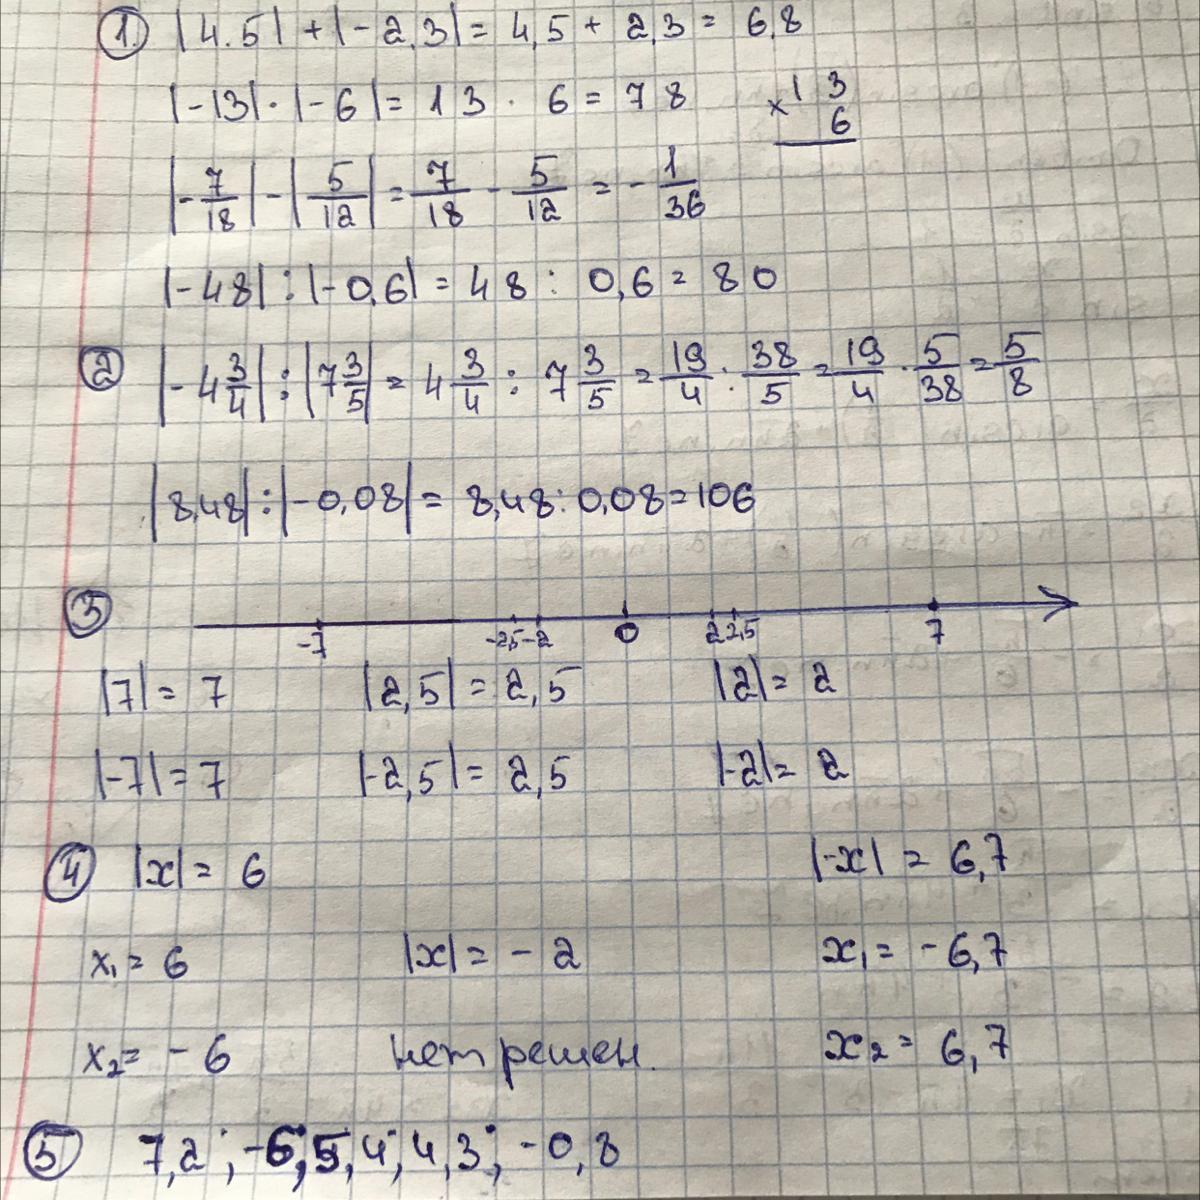 1. |4.5| + |-2,3| = 4,5 + 2,3 = 6,8
|-13| · |-6| = 13 · 6 = 78 × 13
6
|-7/18| - |5/12| = 7/18 - 5/12 = -1/36
|-48| : |-0,6| = 48 : 0,6 = 80
2 |-4 3/4| : |7 3/5| = 4 3/4 : 7 3/5 = 19/4 · 38/5 = 19/4 · 5/38 = 5/8
|8,48| : |-0,08| = 8,48 : 0,08 = 106
3
-7 -2,5 -2 0 2 2,5 7
|7| = 7 |2,5| = 2,5 |2| = 2
|-7| = 7 |-2,5| = 2,5 |-2| = 2
4 |x| = 6 |-x| = 6,7
x₁ = 6 |x| = -2 x₁ = -6,7
x₂ = -6 нет решен. x₂ = 6,7
5 7,2; -6,5; 4; 4,3; -0,8